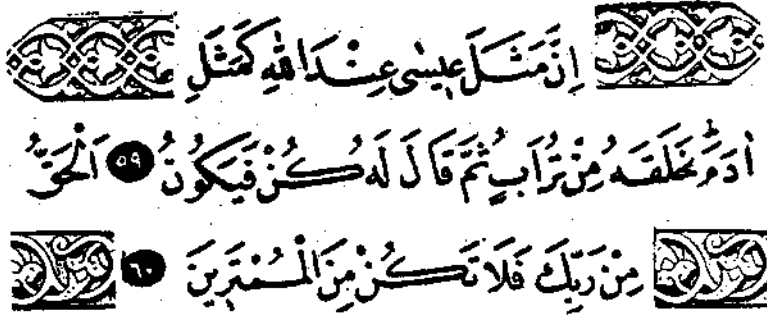 اِنَّ مَثَلَ عٖيسٰى عِنْدَ اللّٰهِ كَمَثَلِ
اٰدَمَؕ خَلَقَهُ مِنْ تُرَابٍ ثُمَّ قَالَ لَهُ كُنْ فَيَكُونُ ٥٩ اَلْحَقُّ
مِنْ رَبِّكَ فَلَا تَكُنْ مِنَ الْمُمْتَرٖينَ ٦٠